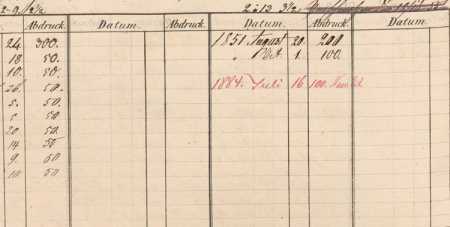 2-9.
Abdruck. Datum. Abdruck. Datum. Abdruck. Datum.
24. 300. 1851. August 20. 200
18 50. " Oct. 1. 100.
10. 50.
26. 50. 1884. Juli 16 100.
5. 50.
5 50
20 50.
14 50
9 50
10 50